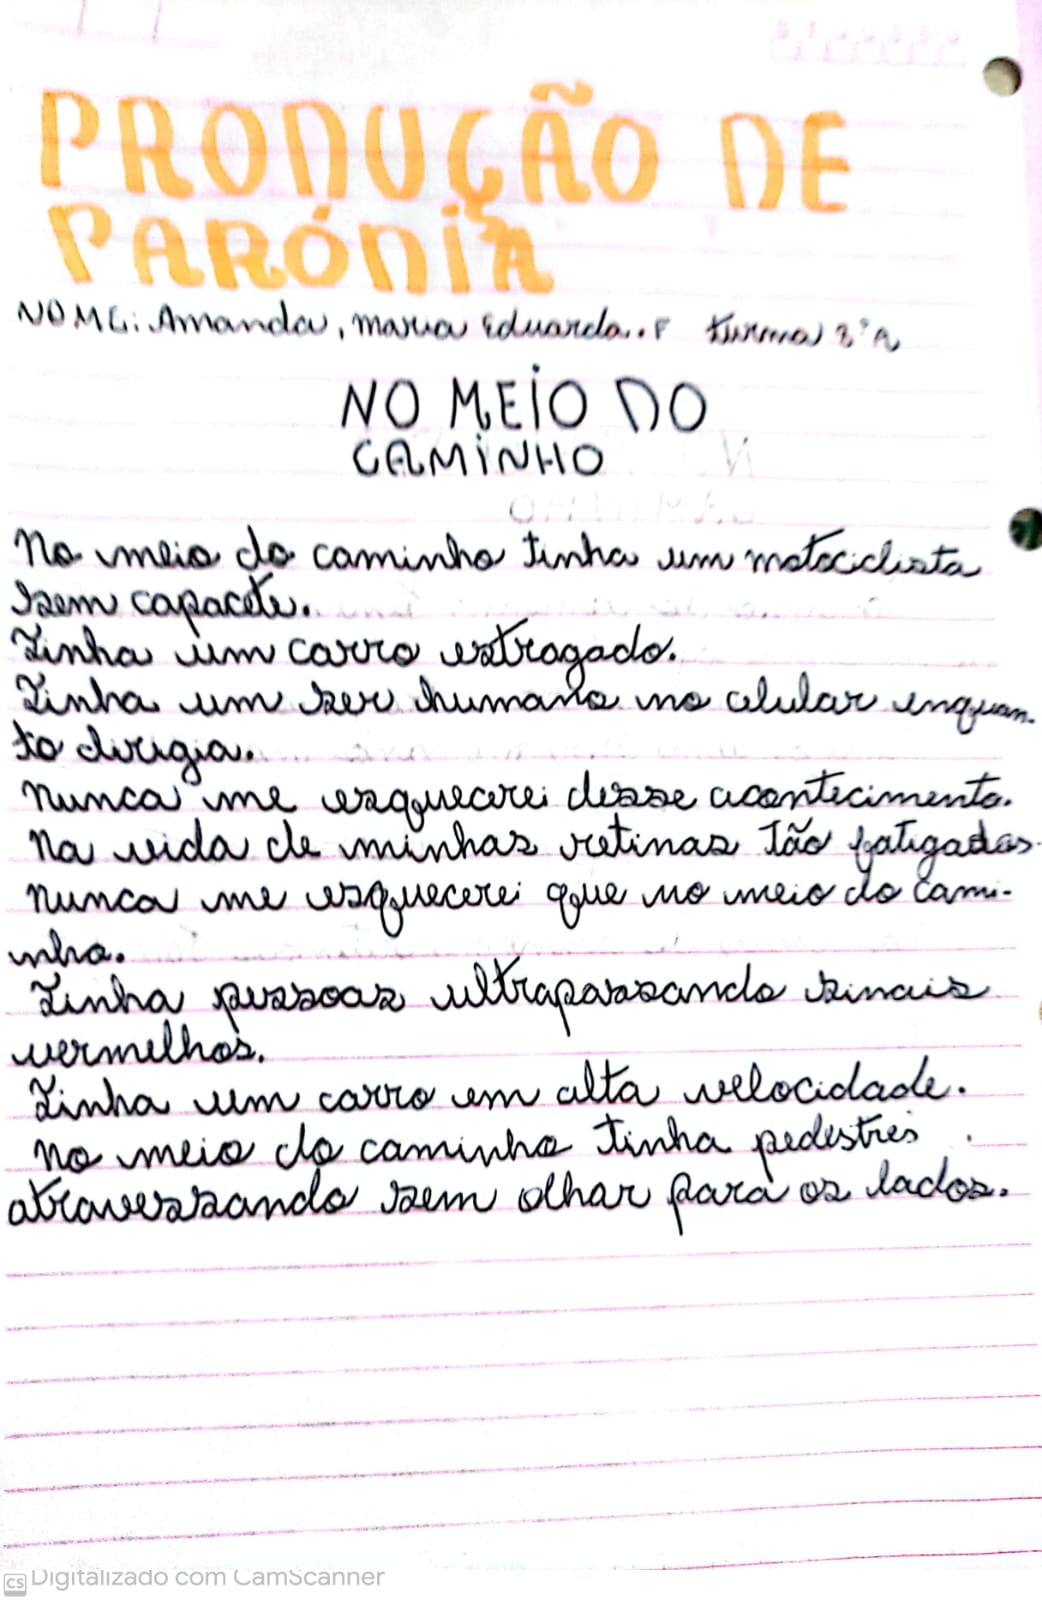 PRODUÇÃO DE
PARÓDIA
NOME: Amanda, Maria Eduarda. F turma 2° A
NO MEIO DO
CAMINHO
No meio do caminho tinha um motociclista
sem capacete.
Tinha um carro estragado.
Tinha um ser humano no celular enquan-
to dirigia.
Nunca me esquecerei desse acontecimento.
Na vida de minhas retinas tão fatigadas.
Nunca me esquecerei que no meio do cami-
nho.
Tinha pessoas ultrapassando sinais
vermelhos.
Tinha um carro em alta velocidade.
No meio do caminho tinha pedestres
atravessando sem olhar para os lados.
CS Digitalizado com CamScanner